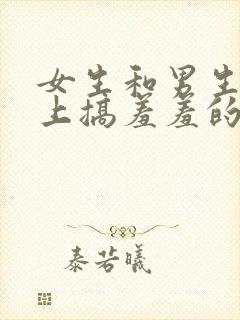 女生和男生
上搞羞羞的
泰若曦